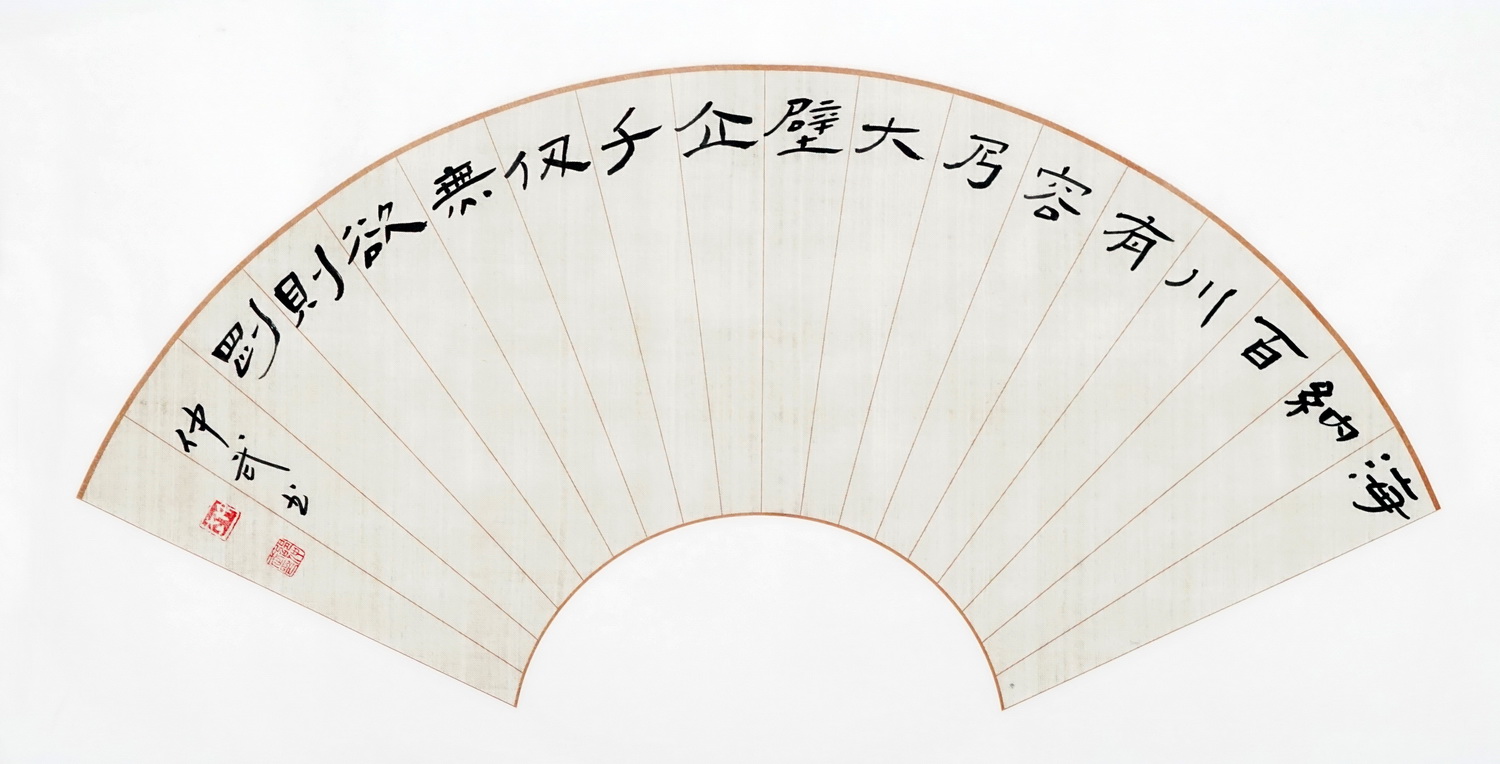 海納百川有容乃大壁企千仞無欲則剛
仲武书